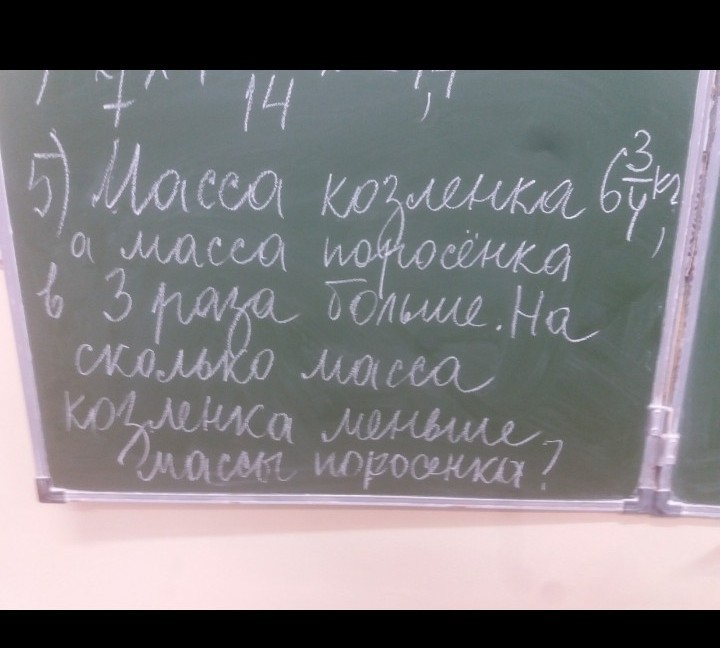 7 14
5) Масса козленка 6 3/4 кг,
а масса поросёнка
в 3 раза больше. На
сколько масса
козленка меньше
массы поросенка?